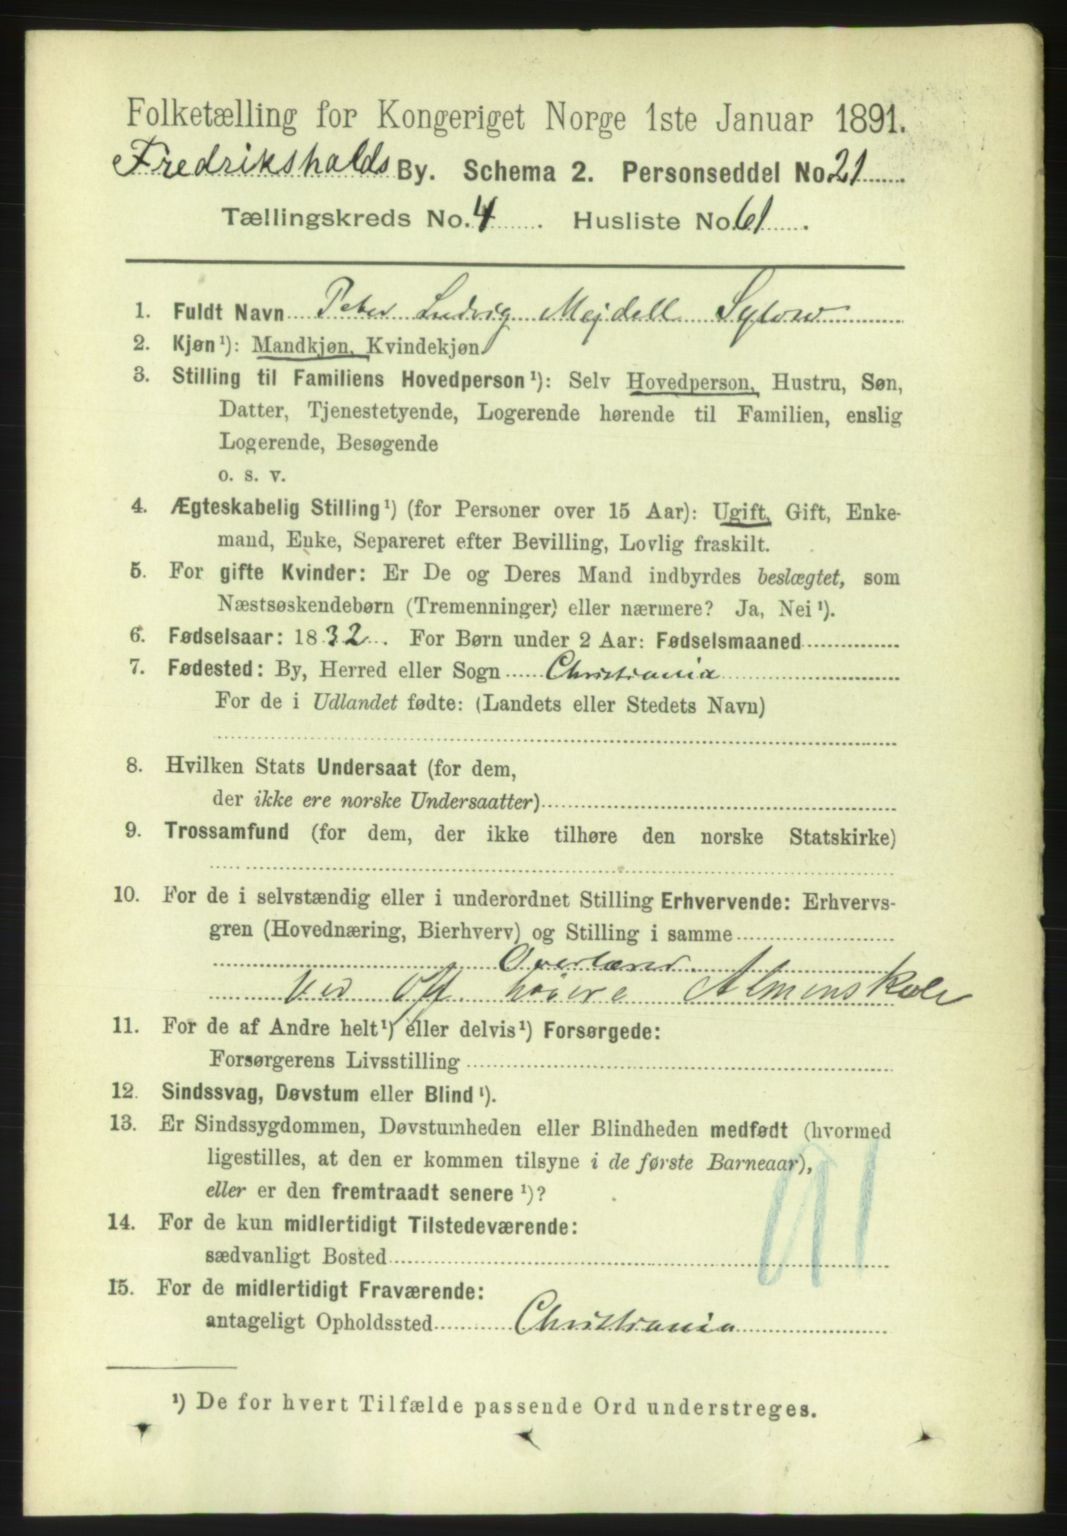 Folketælling for Kongeriget Norge 1ste Januar 1891.
Fredrikshalds By. Schema 2. Personseddel No. 21
Tællingskreds No. 4. Husliste No. 61.
1. Fuldt Navn Peter Ludvig Mejdell Sylow
2. Kjøn¹): Mandkjøn, Kvindekjøn
3. Stilling til Familiens Hovedperson¹): Selv Hovedperson, Hustru, Søn,
Datter, Tjenestetyende, Logerende hørende til Familien, enslig
Logerende, Besøgende
o. s. v.
4. Ægteskabelig Stilling¹) (for Personer over 15 Aar): Ugift, Gift, Enke-
mand, Enke, Separeret efter Bevilling, Lovlig fraskilt.
5. For gifte Kvinder: Er De og Deres Mand indbyrdes beslægtet, som
Næstsøskendebørn (Tremenninger) eller nærmere? Ja, Nei¹).
6. Fødselsaar: 1832. For Børn under 2 Aar: Fødselsmaaned
7. Fødested: By, Herred eller Sogn Christiania
For de i Udlandet fødte: (Landets eller Stedets Navn)
8. Hvilken Stats Undersaat (for dem,
der ikke ere norske Undersaatter)
9. Trossamfund (for dem, der ikke tilhøre den norske Statskirke)
10. For de i selvstændig eller i underordnet Stilling Erhvervende: Erhvervs-
gren (Hovednæring, Bierhverv) og Stilling i samme
Overlærer
ved Off høiere Almenskole
11. For de af Andre helt¹) eller delvis¹) Forsørgede:
Forsørgerens Livsstilling
12. Sindssvag, Døvstum eller Blind¹).
13. Er Sindssygdommen, Døvstumheden eller Blindheden medfødt (hvormed
ligestilles, at den er kommen tilsyne i de første Barneaar),
eller er den fremtraadt senere¹)?
14. For de kun midlertidigt Tilstedeværende:
sædvanligt Bosted
15. For de midlertidigt Fraværende:
antageligt Opholdssted Christiania
¹) De for hvert Tilfælde passende Ord understreges.